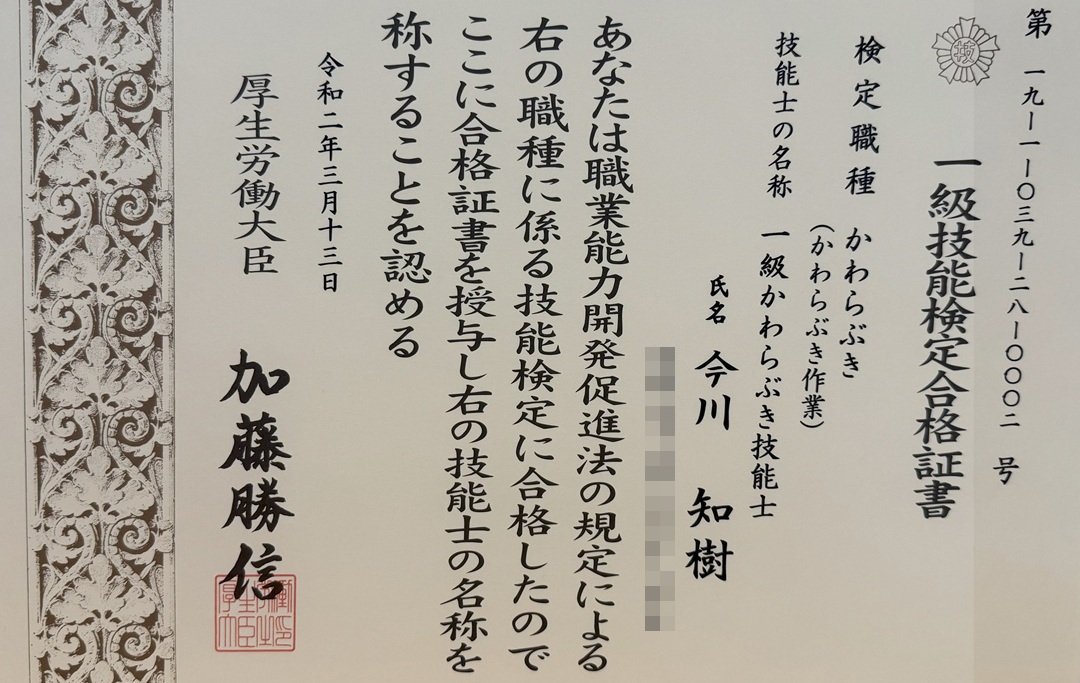 第 一九ー一ー〇三九ー二八ー〇〇〇二 号
一級技能検定合格証書
検定職種 かわらぶき
(かわらぶき作業)
技能士の名称 一級かわらぶき技能士
氏名 今川 知樹
あなたは職業能力開発促進法の規定による
右の職種に係る技能検定に合格したので
ここに合格証書を授与し右の技能士の名称を
称することを認める
令和二年三月十三日
厚生労働大臣 加藤勝信